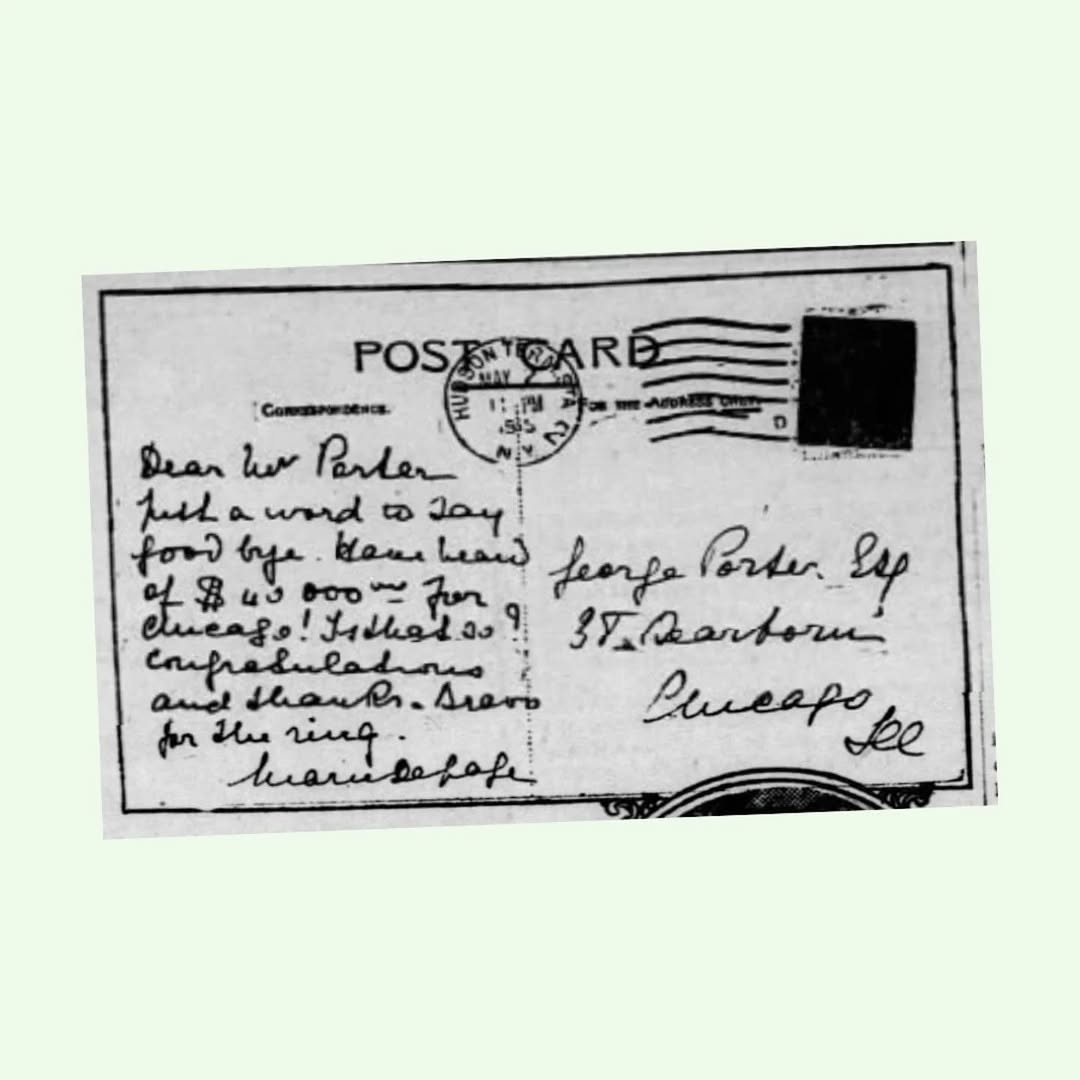 POST CARD
HUDSON TERM. STA.
MAY
11 PM
1915
N.Y.
CORRESPONDENCE.
FOR THE ADDRESS ONLY.
Dear Mr Porter
Just a word to say
good bye. Have heard
of $ 40 000 for
Chicago! Is that so?
Congratulations
and thanks. Bravo
for the ring.
Marie Depage
George Porter. Esq
Dearborn
Chicago
Ill